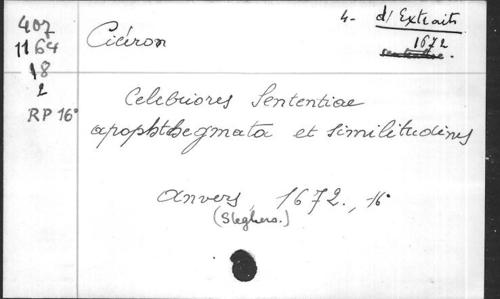 407
1164
18
2
RP 16°
Cicéron
4- d'Extraits
1672
sententiae.
Celebriores Sententiae
apophthegmata et similitudines
Anvers, 1672., 16°
(Sleghers.)